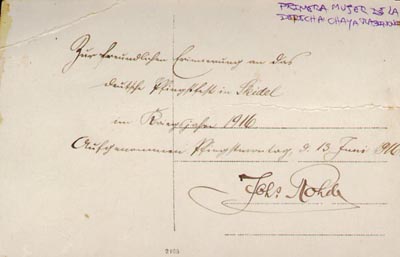 PRIMERA MUJER DE LA
DERECHA CHAYA
Zur freundlichen Erinnerung an das
deutsche Pfingstfest in Skidel
im Kriegsjahre 1916.
Aufgenommen Pfingstmontag, d. 13 Juni 1916
Johs Rohde